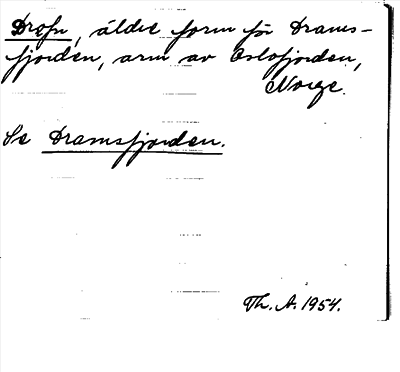 Drofn, äldre form för Drams-
fjorden, arm av Oslofjorden,
Norge.
Se Dramsfjorden.
Th. A. 1954.